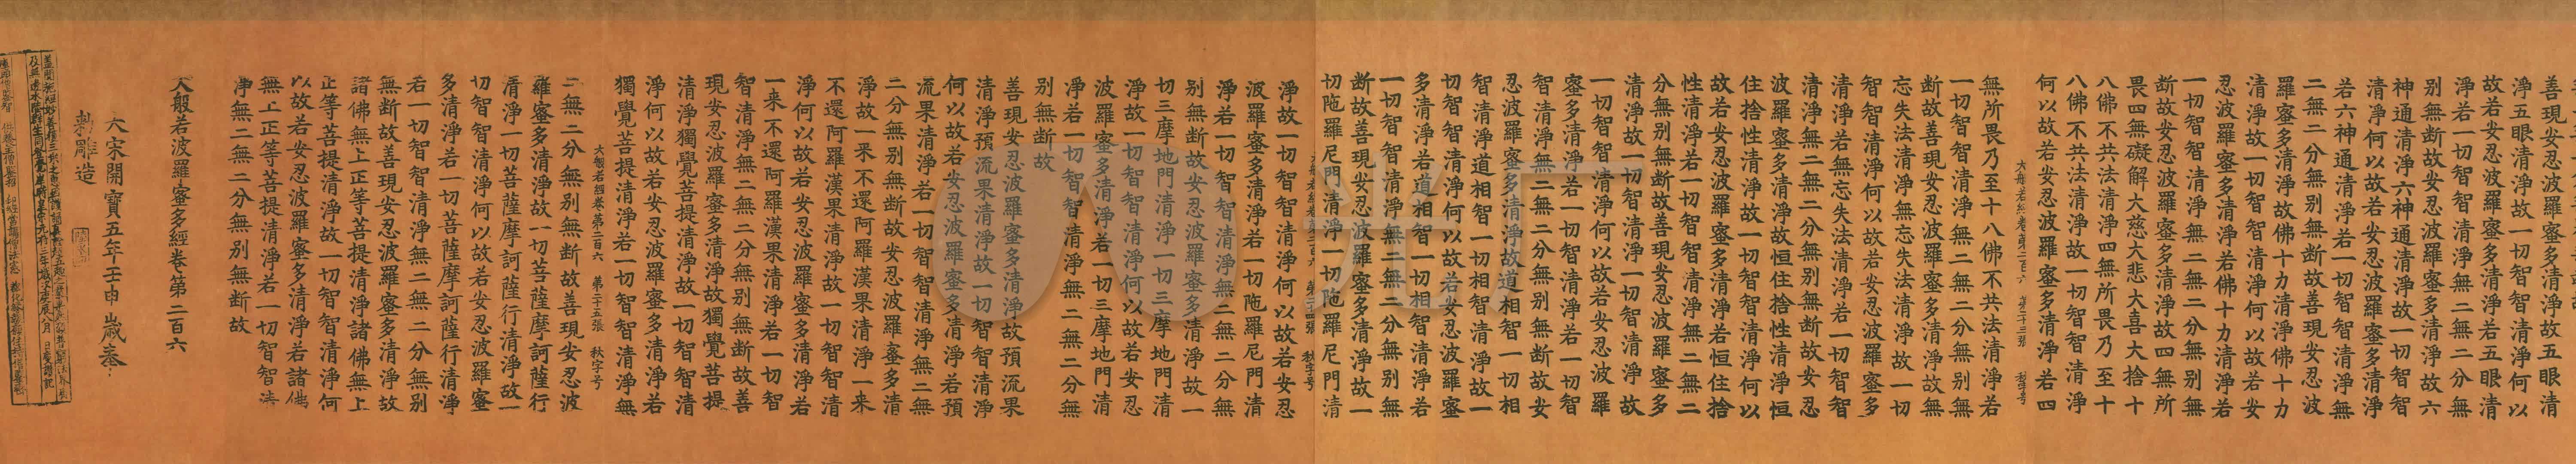 善現安忍波羅蜜多清淨故五眼清
淨五眼清淨故一切智智清淨何以
故若安忍波羅蜜多清淨若五眼清
淨若一切智智清淨無二無二分無
別無斷故安忍波羅蜜多清淨故六
神通清淨六神通清淨故一切智智
清淨何以故若安忍波羅蜜多清淨
若六神通清淨若一切智智清淨無
二無二分無別無斷故善現安忍波
羅蜜多清淨故佛十力清淨佛十力
清淨故一切智智清淨何以故若安
忍波羅蜜多清淨若佛十力清淨若
一切智智清淨無二無二分無別無
斷故安忍波羅蜜多清淨故四無所
畏四無礙解大慈大悲大喜大捨十
八佛不共法清淨四無所畏乃至十
八佛不共法清淨故一切智智清淨
何以故若安忍波羅蜜多清淨若四
大般若經卷第二百六 第二十三張 秋字号
無所畏乃至十八佛不共法清淨若
一切智智清淨無二無二分無別無
斷故善現安忍波羅蜜多清淨故無
忘失法清淨無忘失法清淨故一切
智智清淨何以故若安忍波羅蜜多
清淨若無忘失法清淨若一切智智
清淨無二無二分無別無斷故安忍
波羅蜜多清淨故恒住捨性清淨恒
住捨性清淨故一切智智清淨何以
故若安忍波羅蜜多清淨若恒住捨
性清淨若一切智智清淨無二無二
分無別無斷故善現安忍波羅蜜多
清淨故一切智清淨一切智清淨故
一切智智清淨何以故若安忍波羅
蜜多清淨若一切智清淨若一切智
智清淨無二無二分無別無斷故安
忍波羅蜜多清淨故道相智一切相
智清淨道相智一切相智清淨故一
切智智清淨何以故若安忍波羅蜜
多清淨若道相智一切相智清淨若
一切智智清淨無二無二分無別無
斷故善現安忍波羅蜜多清淨故一
切陁羅尼門清淨一切陁羅尼門清
大般若經卷第二百六 第二十四張 秋字号
淨故一切智智清淨何以故若安忍
波羅蜜多清淨若一切陁羅尼門清
淨若一切智智清淨無二無二分無
別無斷故安忍波羅蜜多清淨故一
切三摩地門清淨一切三摩地門清
淨故一切智智清淨何以故若安忍
波羅蜜多清淨若一切三摩地門清
淨若一切智智清淨無二無二分無
別無斷故
善現安忍波羅蜜多清淨故預流果
清淨預流果清淨故一切智智清淨
何以故若安忍波羅蜜多清淨若預
流果清淨若一切智智清淨無二無
二分無別無斷故安忍波羅蜜多清
淨故一来不還阿羅漢果清淨一来
不還阿羅漢果清淨故一切智智清
淨何以故若安忍波羅蜜多清淨若
一来不還阿羅漢果清淨若一切智
智清淨無二無二分無別無斷故善
現安忍波羅蜜多清淨故獨覺菩提
清淨獨覺菩提清淨故一切智智清
淨何以故若安忍波羅蜜多清淨若
獨覺菩提清淨若一切智智清淨無
大般若經卷第二百六 第二十五張 秋字号
二無二分無別無斷故善現安忍波
羅蜜多清淨故一切菩薩摩訶薩行
清淨一切菩薩摩訶薩行清淨故一
切智智清淨何以故若安忍波羅蜜
多清淨若一切菩薩摩訶薩行清淨
若一切智智清淨無二無二分無別
無斷故善現安忍波羅蜜多清淨故
諸佛無上正等菩提清淨諸佛無上
正等菩提清淨故一切智智清淨何
以故若安忍波羅蜜多清淨若諸佛
無上正等菩提清淨若一切智智清
淨無二無二分無別無斷故
大般若波羅蜜多經卷第二百六
大宋開寶五年壬申歲奉
勑雕造